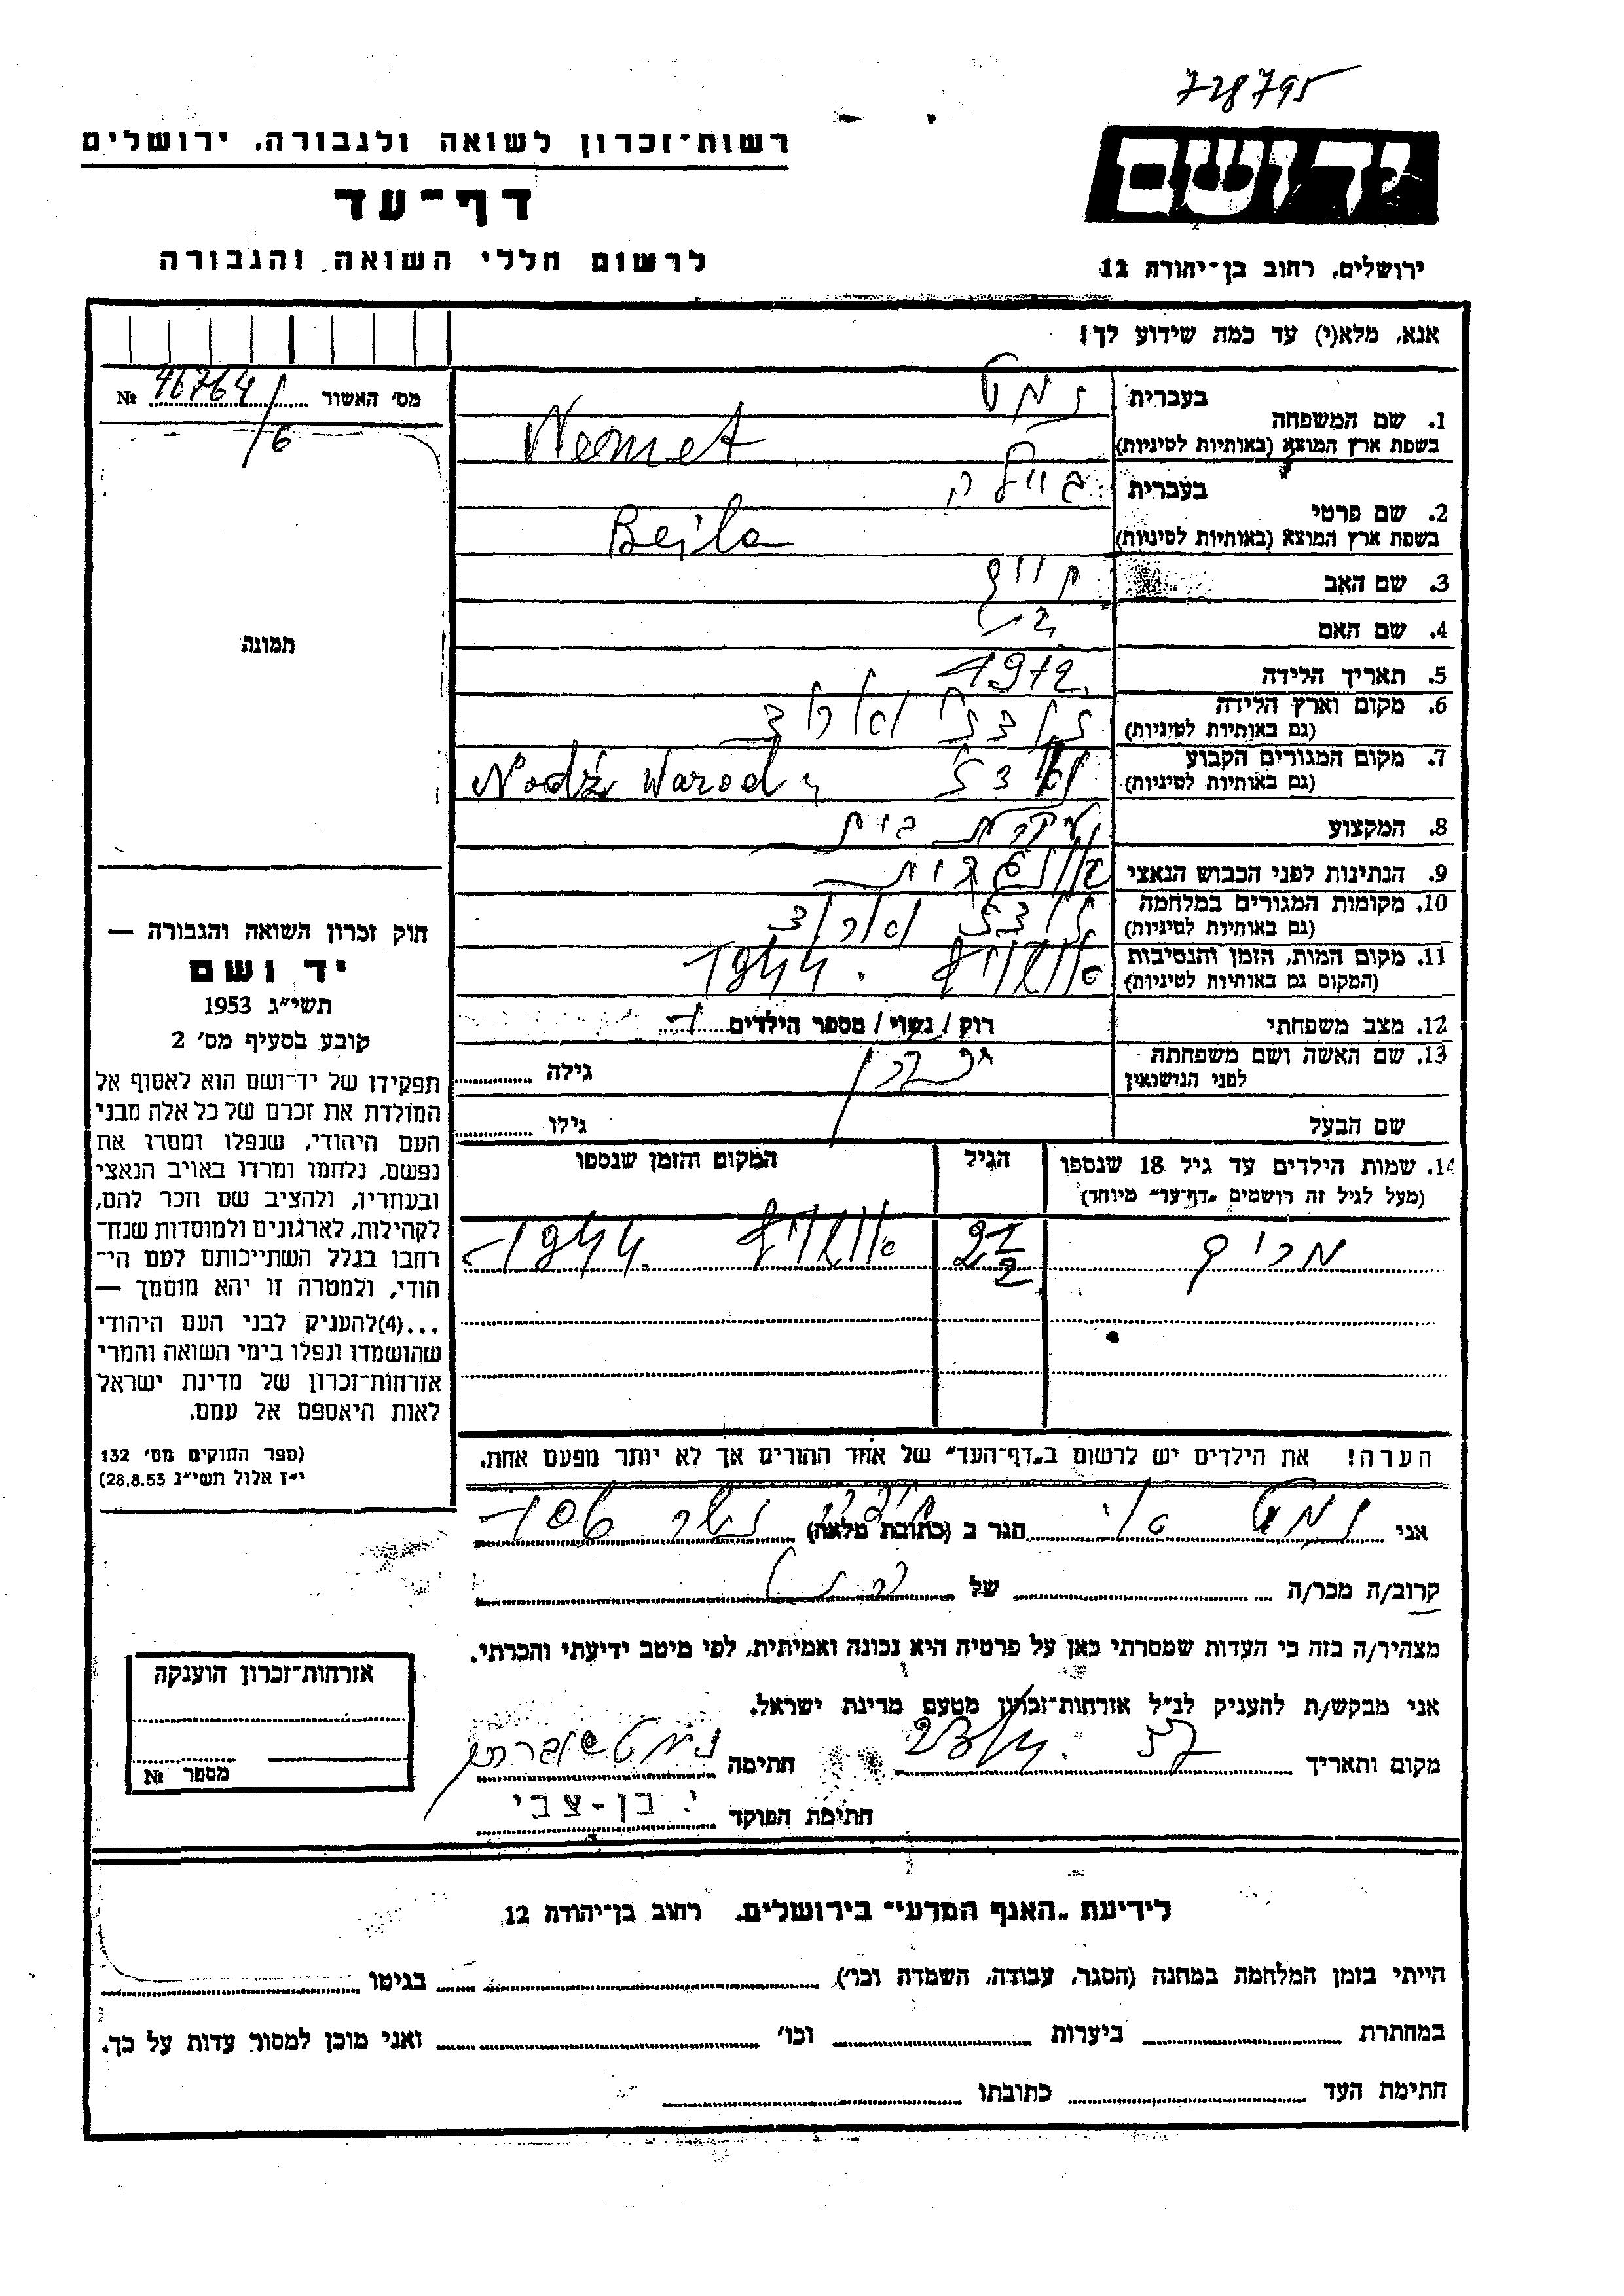 728795
יד ושם
רשות־זכרון לשואה ולגבורה, ירושלים
דף־עד
לרשום חללי השואה והגבורה
ירושלים, רחוב בן־יהודה 12
אנא, מלא(י) עד כמה שידוע לך!
מס׳ האשור 46764/6 №
תמונה
חוק זכרון השואה והגבורה —
יד ושם
תשי״ג 1953
קובע בסעיף מס׳ 2
תפקידו של יד־ושם הוא לאסוף אל
המולדת את זכרם של כל אלה מבני
העם היהודי, שנפלו ומסרו את
נפשם, נלחמו ומרדו באויב הנאצי
ובעוזריו, ולהציב שם וזכר להם,
לקהילות, לארגונים ולמוסדות שנח־
רחבו בגלל השתייכותם לעם הי־
הודי, ולמטרה זו יהא מוסמך —
...(4)להעניק לבני העם היהודי
שהושמדו ונפלו בימי השואה והמרי
אזרחות־זכרון של מדינת ישראל
לאות היאספם אל עמם.
(ספר החוקים מס׳ 132
י״ז אלול תשי״ג 28.8.53)
1. שם המשפחה בעברית נמט
בשפת ארץ המוצא (באותיות לטיניות) Nemet
2. שם פרטי בעברית ביילה
בשפת ארץ המוצא (באותיות לטיניות) Bejla
3. שם האב
4. שם האם
5. תאריך הלידה 1912
6. מקום וארץ הלידה
(גם באותיות לטיניות)
7. מקום המגורים הקבוע Nodź Warod
(גם באותיות לטיניות)
8. המקצוע עקרת בית
9. הנתינות לפני הכבוש הנאצי
10. מקומות המגורים במלחמה
(גם באותיות לטיניות)
11. מקום המות, הזמן והנסיבות 1944
(המקום גם באותיות לטיניות)
12. מצב משפחתי רוק / נשוי / מספר הילדים 1
13. שם האשה ושם משפחתה גילה
לפני הנישואין
שם הבעל גילו
14. שמות הילדים עד גיל 18 שנספו הגיל המקום והזמן שנספו
(מעל לגיל זה רושמים „דף־עד״ מיוחד)
2 1/2 1944
הערה! את הילדים יש לרשום ב„דף־העד״ של אחד ההורים אך לא יותר מפעם אחת.
אני נמט הגר ב (כתובת מלאה)
קרוב/ה מכר/ה של
מצהיר/ה בזה כי העדות שמסרתי כאן על פרטיה היא נכונה ואמיתית, לפי מיטב ידיעתי והכרתי.
אני מבקש/ת להעניק לנ״ל אזרחות־זכרון מטעם מדינת ישראל.
מקום ותאריך חתימה
חתימת הפוקד י. בן-צבי
אזרחות־זכרון הוענקה
מספר №
לידיעת „האגף המדעי״ בירושלים, רחוב בן־יהודה 12
הייתי בזמן המלחמה במחנה (הסגר, עבודה, השמדה וכו׳) בגיטו
במחתרת ביערות וכו׳ ואני מוכן למסור עדות על כך.
חתימת העד כתובתו